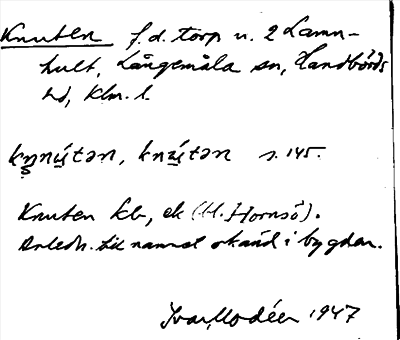 Knuten f.d. torp u. 2 Lamn-
hult, Långemåla sn, Handbörds
hd, Klm. l.
kn̥nústən, knústən s. 145.
Knuten kb, ek (bl. Hornsö).
Anledn. till namnet okänd i bygden.
Ivar Modéer 1947